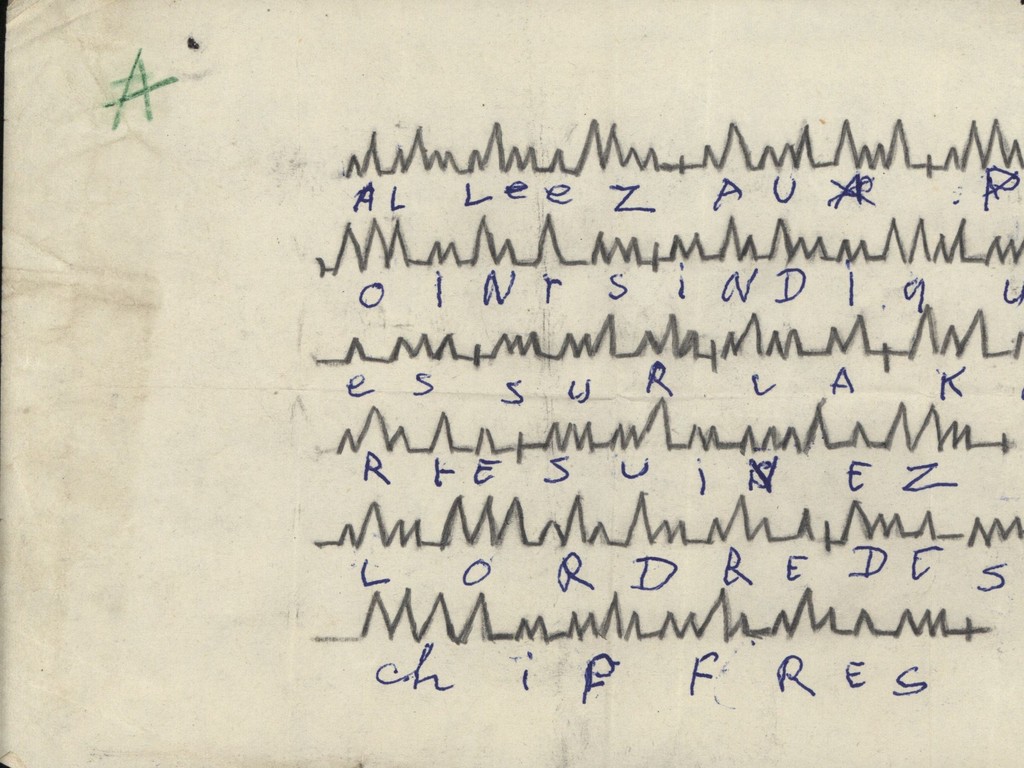 A
AL LeeZ AUX P
OINTSiNDIqU
es suR LA K
RtESUiVEZ
LORDREDES
chiFFRES